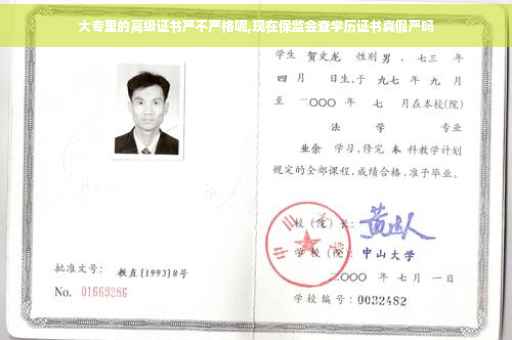 大专里的高级证书严不严格呢,现在保监会查学历证书真假严吗
学生 贺文龙 性别 男 、七三 年
四 月 日生,于 九七 年 九 月
至 二〇〇〇 年 七 月在本校(院)
法 学 专业
业余 学习,修完 本 科教学计划
规定的全部课程,成绩合格,准予毕业。
校(院)长:
学校(院): 中山大学
二〇〇〇 年 七 月 一 日
批准文号: 教直[1993]8号
No. 01669286
学校编号: 0032482